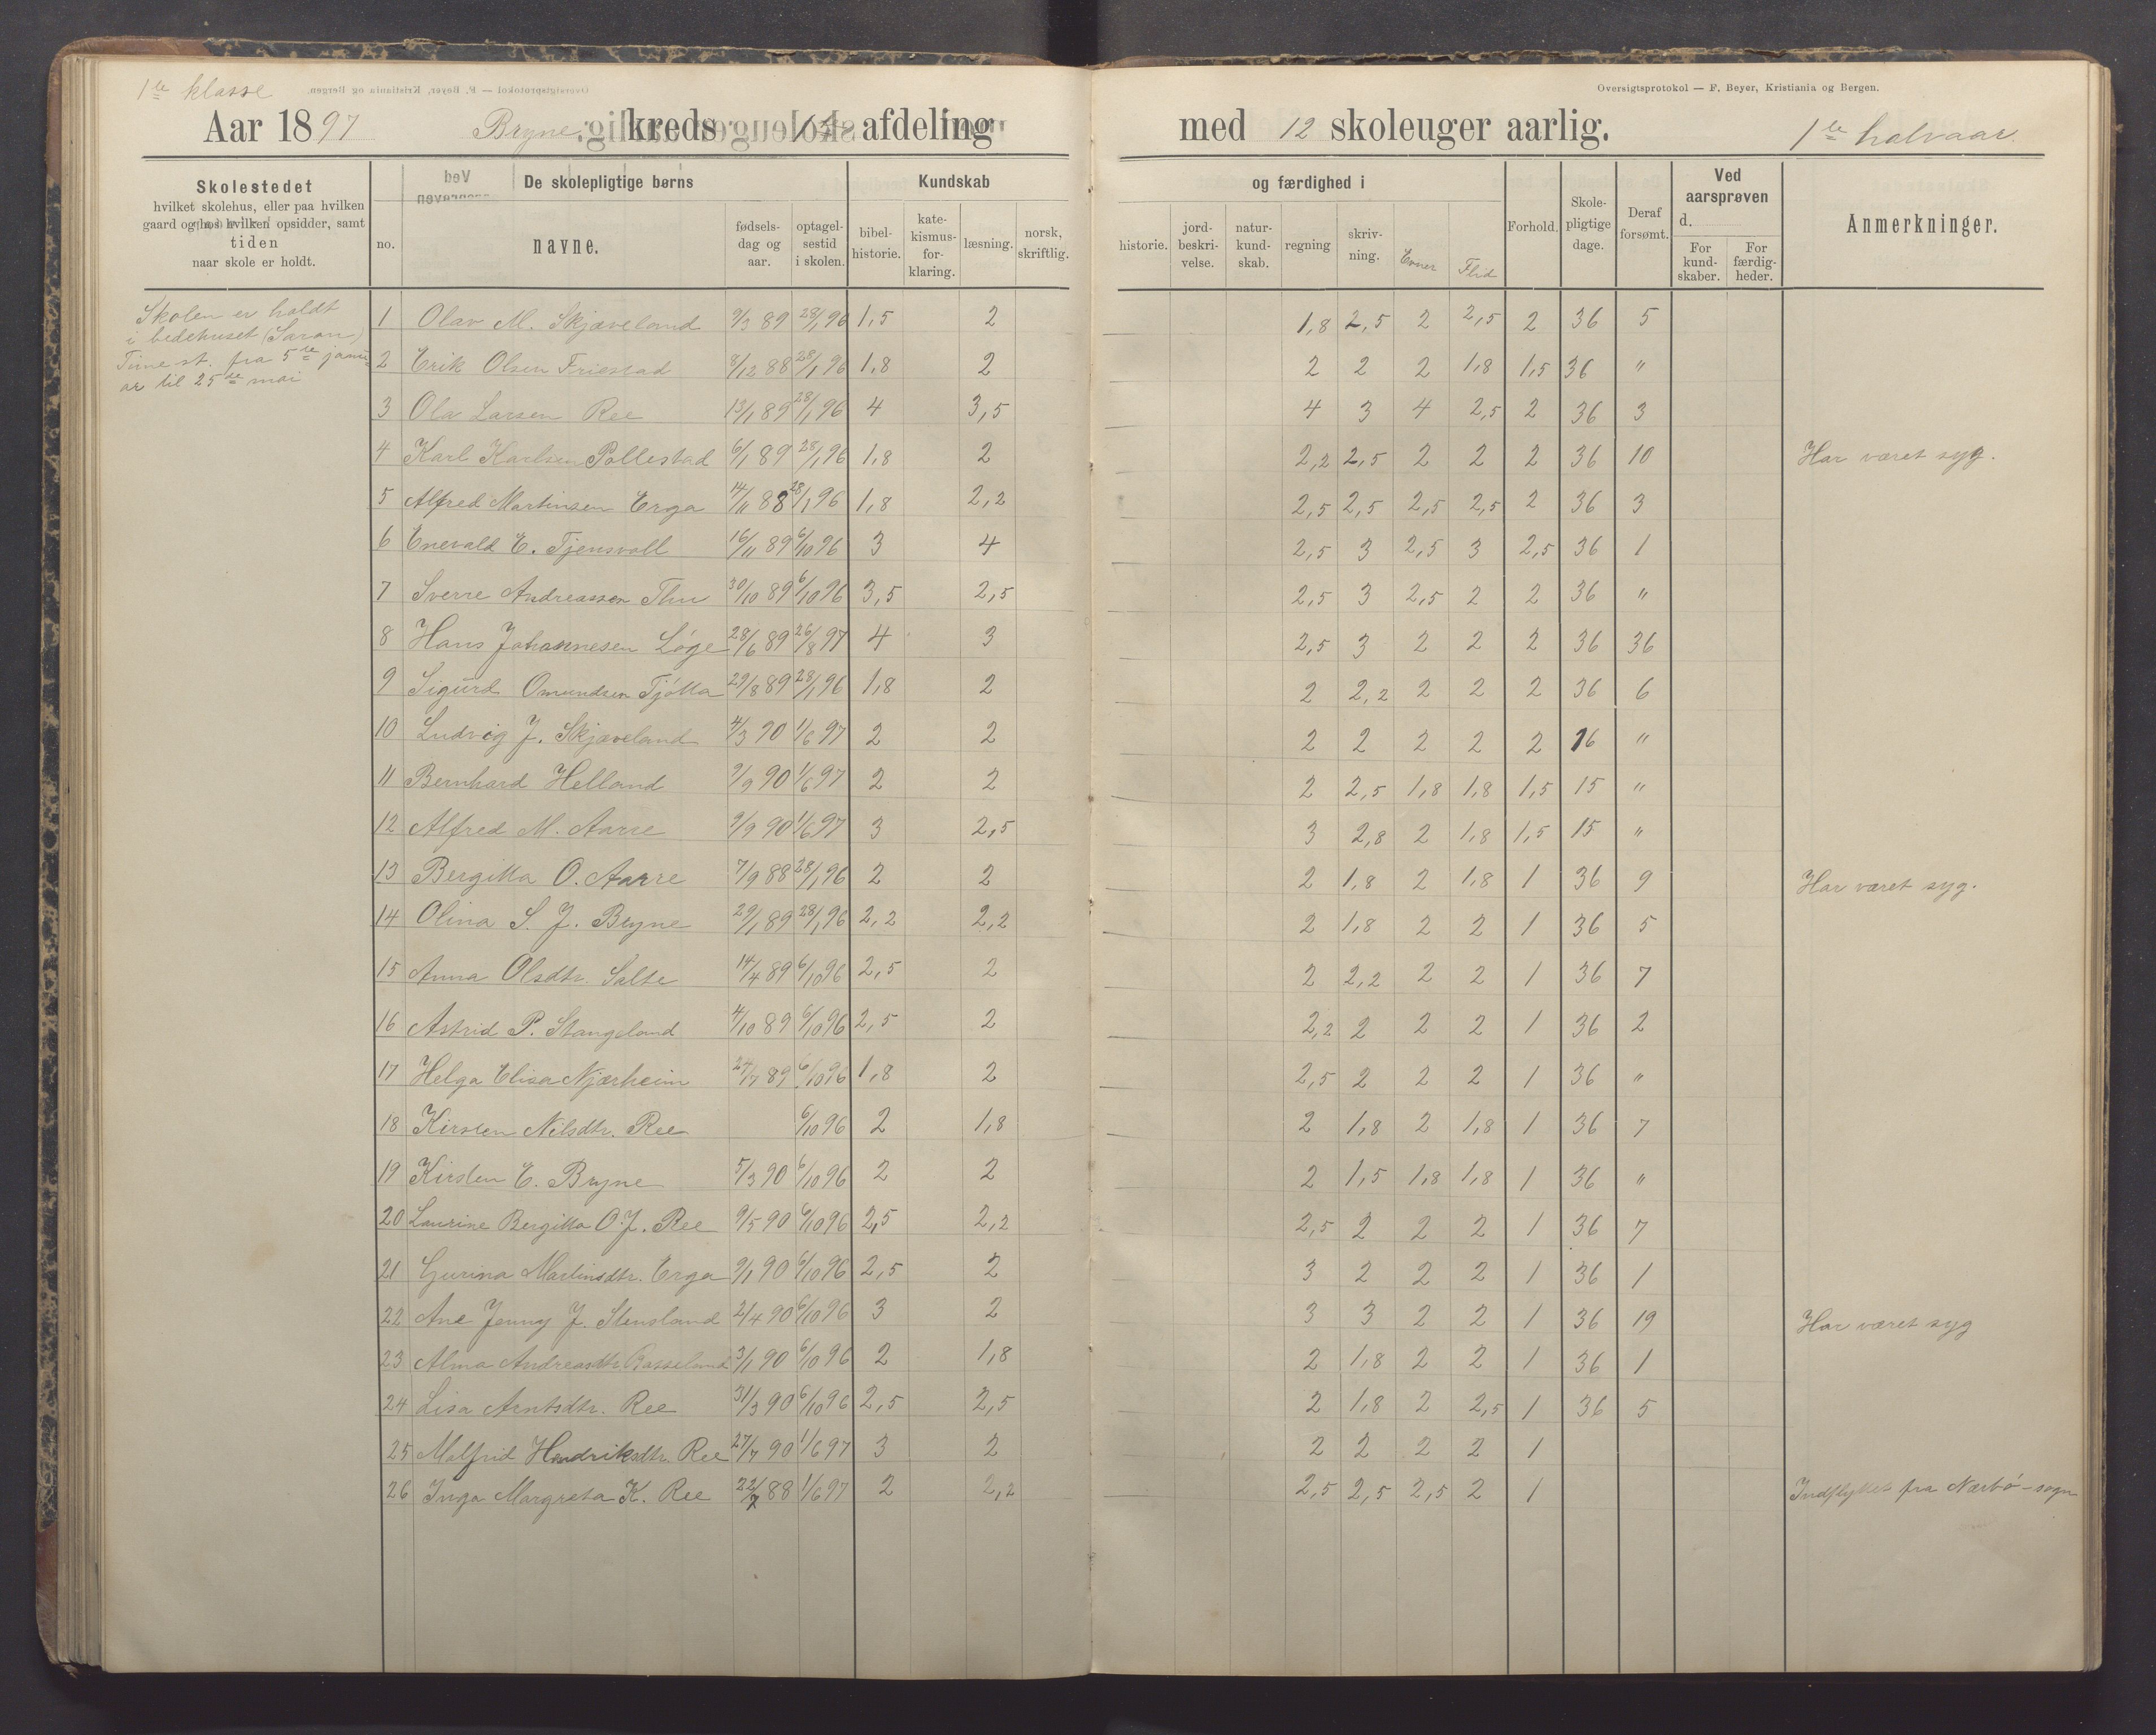 1te klasse
Oversigtsprotokol — F. Beyer, Kristiania og Bergen.
Aar 1897 Bryne kreds 1ste afdeling med 12 skoleuger aarlig. 1te halvaar.
Skolestedet
hvilket skolehus, eller paa hvilken
gaard og hos hvilken opsidder, samt
tiden
naar skole er holdt.
De skolepligtige børns
Kundskab og færdighed i
no. navne. fødsels-dag og aar. optagel-sestid i skolen. bibel-historie. kate-kismus-for-klaring. læsning. norsk, skriftlig. historie. jord-beskri-velse. natur-kund-skab. regning skriv-ning. Evner Flid Forhold. Skole-pligtige dage. Deraf forsømt. Ved aarsprøven d. For kund-skaber. For færdig-heder. Anmerkninger.
Skolen er holdt
i bedehuset (Saron)
Time st. fra 5te janu-
ar til 25de mai
1 Olav M. Skjæveland 9/3 89 28/1 96 1,5 2 1,8 2,5 2 2,5 2 36 5
2 Erik Olsen Friestad 8/12 88 28/1 96 1,8 2 2 2 2 1,8 1,5 36 "
3 Ola Larsen Ree 13/1 89 28/1 96 4 3,5 4 3 4 2,5 2 36 3
4 Karl Karlsen Pollestad 6/1 89 28/1 96 1,8 2 2,2 2,5 2 2 2 36 10 Har været syg.
5 Alfred Martinsen Erga 14/11 88 28/1 96 1,8 2,2 2,5 2,5 2,5 2,5 2 36 3
6 Enevald E. Tjensvoll 16/11 89 6/10 96 3 4 2,5 3 2,5 3 2,5 36 1
7 Sverre Andreassen Thu 30/10 89 6/10 96 3,5 2,5 2,5 3 2,5 2 2 36 "
8 Hans Johannesen Løge 28/6 89 26/8 97 4 3 2,5 3 2 2 2 36 36
9 Sigurd Omundsen Tjøtta 29/8 89 28/1 96 1,8 2 2 2,2 2 2 2 36 6
10 Ludvig J. Skjæveland 4/3 90 1/6 97 2 2 2 2 2 2 2 16 "
11 Bernhard Helland 9/9 90 1/6 97 2 2 2 2,5 1,8 1,8 1,5 15 "
12 Alfred M. Aarre 9/9 90 1/6 97 3 2,5 3 2,8 2 1,8 1,5 15 "
13 Bergitta O. Aarre 7/9 88 28/1 96 2 2 2 1,8 2 1,8 1 36 9 Har været syg.
14 Olina S. J. Bryne 29/1 89 28/1 96 2,2 2,2 2 1,8 2 2 1 36 5
15 Anna Olsdtr. Salte 14/4 89 6/10 96 2,5 2 2 2,2 2 2 1 36 7
16 Astrid P. Stangeland 4/10 89 6/10 96 2,5 2 2,2 2 2 2 1 36 2
17 Helga Elisa Njærheim 24/7 89 6/10 96 1,8 2 2,5 2 2 2 1 36 "
18 Kirsten Nilsdtr. Ree 6/10 96 2 1,8 2 1,8 2 1,8 1 36 7
19 Kirsten E. Bryne 5/3 90 6/10 96 2 2 2 1,5 1,8 1,8 1 36 "
20 Laurine Bergitta O. J. Ree 9/5 90 6/10 96 2,5 2,2 2,5 2 2 2 1 36 7
21 Gurina Martinsdtr. Erga 9/1 90 6/10 96 2,5 2 3 2 2 2 1 36 1
22 Ane Jenny J. Stensland 2/4 90 6/10 96 3 2 3 3 2 2 1 36 19 Har været syg
23 Alma Andreasdtr. 3/1 90 6/10 96 2 1,8 2 1,8 2 2 1 36 1
24 Lisa Arntsdtr. Ree 31/3 90 6/10 96 2,5 2,5 2 1,8 2 2,5 1 36 5
25 Malfrid Hendriksdtr. Ree 27/7 90 1/6 97 3 2 2 2 2 2 1
26 Inga Margreta K. Ree 22/7 88 1/6 97 2 2,2 2,5 2,5 2,5 2 1 Indflyttet fra Nærbø-sogn